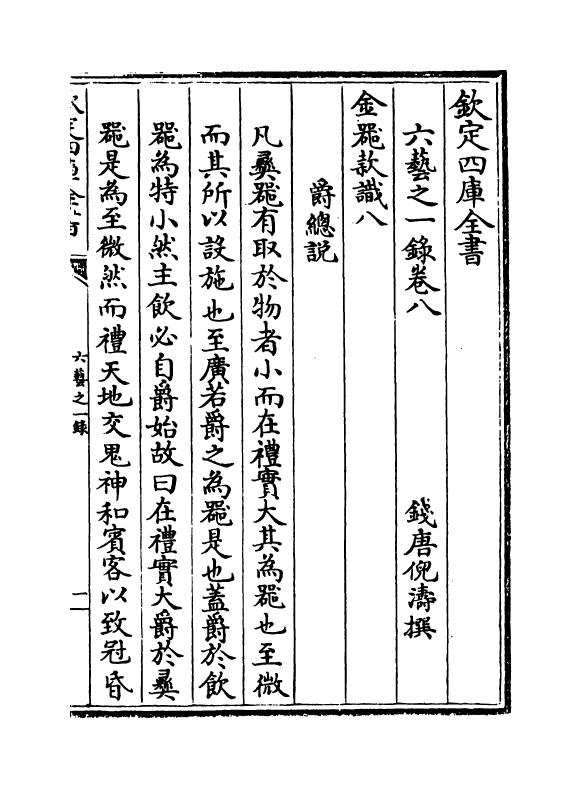 欽定四庫全書
六藝之一錄卷八
錢唐倪濤撰
金器款識八
爵總説
凡彞器有取於物者小而在禮實大其為器也至微
而其所以設施也至廣若爵之為器是也蓋爵於飲
器為特小然主飲必自爵始故曰在禮實大爵於彞
器是為至微然而禮天地交鬼神和賓客以致冠昏
六藝之一錄
一